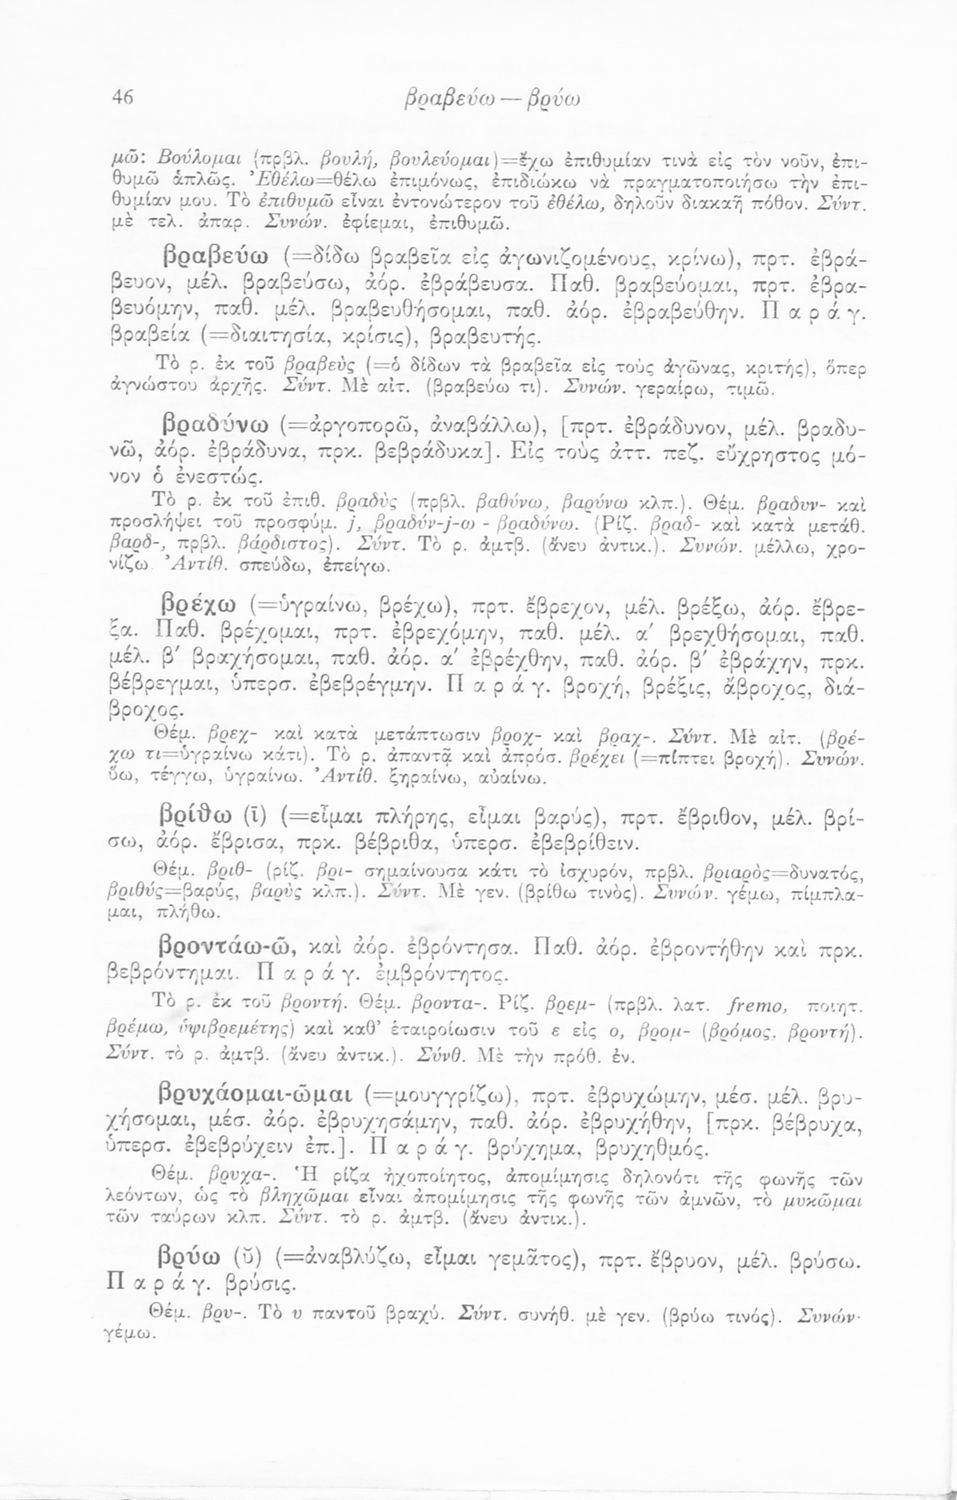 46
βραβεύω — βρύω
μῶ: Βούλομαι (πρβλ. βουλή, βουλεύομαι)=ἔχω ἐπιθυμίαν τινὰ εἰς τὸν νοῦν, ἐπι-
θυμῶ ἁπλῶς. Ἐθέλω=θέλω ἐπιμόνως, ἐπιδιώκω νὰ πραγματοποιήσω τὴν ἐπι-
θυμίαν μου. Τὸ ἐπιθυμῶ εἶναι ἐντονώτερον τοῦ ἐθέλω, δηλοῦν διακαῆ πόθον. Σύντ.
μὲ τελ. ἀπαρ. Συνών. ἐφίεμαι, ἐπιθυμῶ.
βραβεύω (=δίδω βραβεῖα εἰς ἀγωνιζομένους, κρίνω), πρτ. ἐβρά-
βευον, μέλ. βραβεύσω, ἀόρ. ἐβράβευσα. Παθ. βραβεύομαι, πρτ. ἐβρα-
βευόμην, παθ. μέλ. βραβευθήσομαι, παθ. ἀόρ. ἐβραβεύθην. Παράγ.
βραβεία (=διαιτησία, κρίσις), βραβευτής.
Τὸ ρ. ἐκ τοῦ βραβεὺς (=ὁ δίδων τὰ βραβεῖα εἰς τοὺς ἀγῶνας, κριτής), ὅπερ
ἀγνώστου ἀρχῆς. Σύντ. Μὲ αἰτ. (βραβεύω τι). Συνών. γεραίρω, τιμῶ.
βραδύνω (=ἀργοπορῶ, ἀναβάλλω), [πρτ. ἐβράδυνον, μέλ. βραδυ-
νῶ, ἀόρ. ἐβράδυνα, πρκ. βεβράδυκα]. Εἰς τοὺς ἀττ. πεζ. εὔχρηστος μό-
νον ὁ ἐνεστώς.
Τὸ ρ. ἐκ τοῦ ἐπιθ. βραδὺς (πρβλ. βαθύνω, βαρύνω κλπ.). Θέμ. βραδυν- καὶ
προσλήψει τοῦ προσφύμ. j, βραδύν-j-ω - βραδύνω. (Ρίζ. βραδ- καὶ κατὰ μετάθ.
βαρδ-, πρβλ. βάρδιστος). Σύντ. Τὸ ρ. ἀμτβ. (ἄνευ ἀντικ.). Συνών. μέλλω, χρο-
νίζω. Ἀντίθ. σπεύδω, ἐπείγω.
βρέχω (=ὑγραίνω, βρέχω), πρτ. ἔβρεχον, μέλ. βρέξω, ἀόρ. ἔβρε-
ξα. Παθ. βρέχομαι, πρτ. ἐβρεχόμην, παθ. μέλ. α΄ βρεχθήσομαι, παθ.
μέλ. β΄ βραχήσομαι, παθ. ἀόρ. α΄ ἐβρέχθην, παθ. ἀόρ. β΄ ἐβράχην, πρκ.
βέβρεγμαι, ὑπερσ. ἐβεβρέγμην. Παράγ. βροχή, βρέξις, ἄβροχος, διά-
βροχος.
Θέμ. βρεχ- καὶ κατὰ μετάπτωσιν βροχ- καὶ βραχ-. Σύντ. Μὲ αἰτ. (βρέ-
χω τι=ὑγραίνω κάτι). Τὸ ρ. ἀπαντᾷ καὶ ἀπρόσ. βρέχει (=πίπτει βροχή). Συνών.
ὕω, τέγγω, ὑγραίνω. Ἀντίθ. ξηραίνω, αὐαίνω.
βρίθω (ῑ) (=εἶμαι πλήρης, εἶμαι βαρύς), πρτ. ἔβριθον, μέλ. βρί-
σω, ἀόρ. ἔβρισα, πρκ. βέβριθα, ὑπερσ. ἐβεβρίθειν.
Θέμ. βριθ- (ρίζ. βρι- σημαίνουσα κάτι τὸ ἰσχυρόν, πρβλ. βριαρὸς=δυνατός,
βριθύς=βαρύς, βαρὺς κλπ.). Σύντ. Μὲ γεν. (βρίθω τινὸς). Συνών. γέμω, πίμπλα-
μαι, πλήθω.
βροντάω-ῶ, καὶ ἀόρ. ἐβρόντησα. Παθ. ἀόρ. ἐβροντήθην καὶ πρκ.
βεβρόντημαι. Παράγ. ἐμβρόντητος.
Τὸ ρ. ἐκ τοῦ βροντή. Θέμ. βροντα-. Ρίζ. βρεμ- (πρβλ. λατ. fremo, ποιητ.
βρέμω, ὑψιβρεμέτης) καὶ καθ’ ἑταιροίωσιν τοῦ ε εἰς ο, βρομ- (βρόμος, βροντή).
Σύντ. τὸ ρ. ἀμτβ. (ἄνευ ἀντικ.). Σύνθ. Μὲ τὴν πρόθ. ἐν.
βρυχάομαι-ῶμαι (=μουγγρίζω), πρτ. ἐβρυχώμην, μέσ. μέλ. βρυ-
χήσομαι, μέσ. ἀόρ. ἐβρυχησάμην, παθ. ἀόρ. ἐβρυχήθην, [πρκ. βέβρυχα,
ὑπερσ. ἐβεβρύχειν ἐπ.]. Παράγ. βρύχημα, βρυχηθμός.
Θέμ. βρυχα-. Ἡ ρίζα ἠχοποίητος, ἀπομίμησις δηλονότι τῆς φωνῆς τῶν
λεόντων, ὡς τὸ βληχῶμαι εἶναι ἀπομίμησις τῆς φωνῆς τῶν ἀμνῶν, τὸ μυκῶμαι
τῶν ταύρων κλπ. Σύντ. τὸ ρ. ἀμτβ. (ἄνευ ἀντικ.).
βρύω (ῠ) (=ἀναβλύζω, εἶμαι γεμᾶτος), πρτ. ἔβρυον, μέλ. βρύσω.
Παράγ. βρύσις.
Θέμ. βρυ-. Τὸ υ παντοῦ βραχύ. Σύντ. συνήθ. μὲ γεν. (βρύω τινός). Συνών·
γέμω.